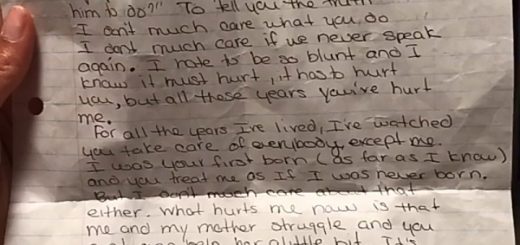 him to do?" To tell you the truth
I dont much care what you do
I dont much care if we never speak
again. I hate to be so blunt and I
know it must hurt, it has to hurt
you, but all these years you've hurt
me.
For all the years I've lived, I've watched
you take care of everybody except me.
I was your first born (as far as I know)
and you treat me as If I was never born.
But I don't much care about that
either. What hurts me now is that
me and my mother struggle and you
her a little bit. It's